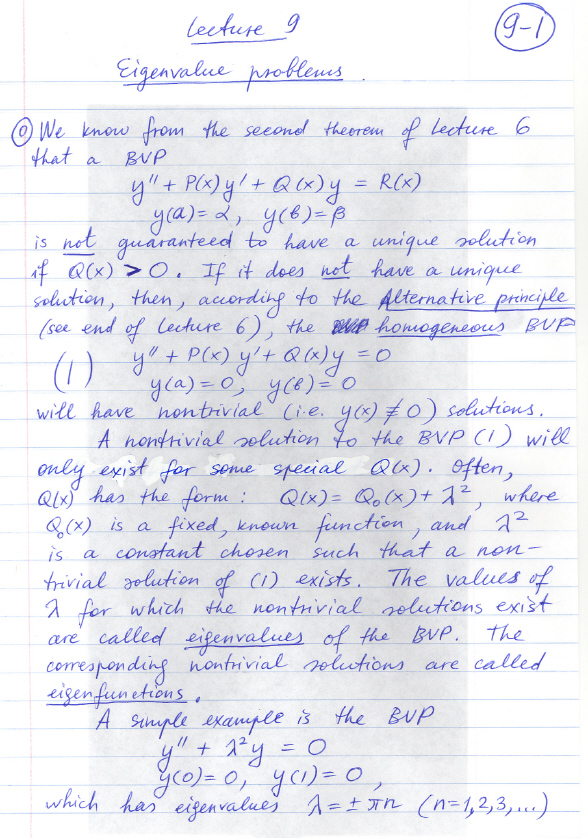 Lecture 9
9-1
Eigenvalue problems.
⓪ We know from the second theorem of Lecture 6
that a BVP
y'' + P(x) y' + Q(x) y = R(x)
y(a) = α, y(b) = β
is not guaranteed to have a unique solution
if Q(x) > 0. If it does not have a unique
solution, then, according to the Alternative principle
(see end of Lecture 6), the homogeneous BVP
(1) y'' + P(x) y' + Q(x) y = 0
y(a) = 0, y(b) = 0
will have nontrivial (i.e. y(x) ≢ 0) solutions.
A nontrivial solution to the BVP (1) will
only exist for some special Q(x). Often,
Q(x) has the form : Q(x) = Q₀(x) + λ², where
Q₀(x) is a fixed, known function, and λ²
is a constant chosen such that a non-
trivial solution of (1) exists. The values of
λ for which the nontrivial solutions exist
are called eigenvalues of the BVP. The
corresponding nontrivial solutions are called
eigenfunctions.
A simple example is the BVP
y'' + λ² y = 0
y(0) = 0, y(1) = 0,
which has eigenvalues λ = ± πn (n=1,2,3,...)